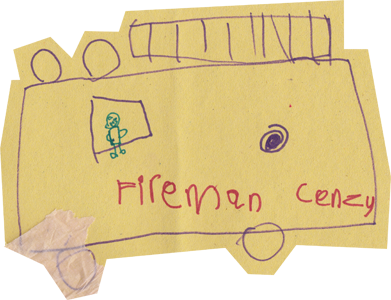 Fireman Cenzy